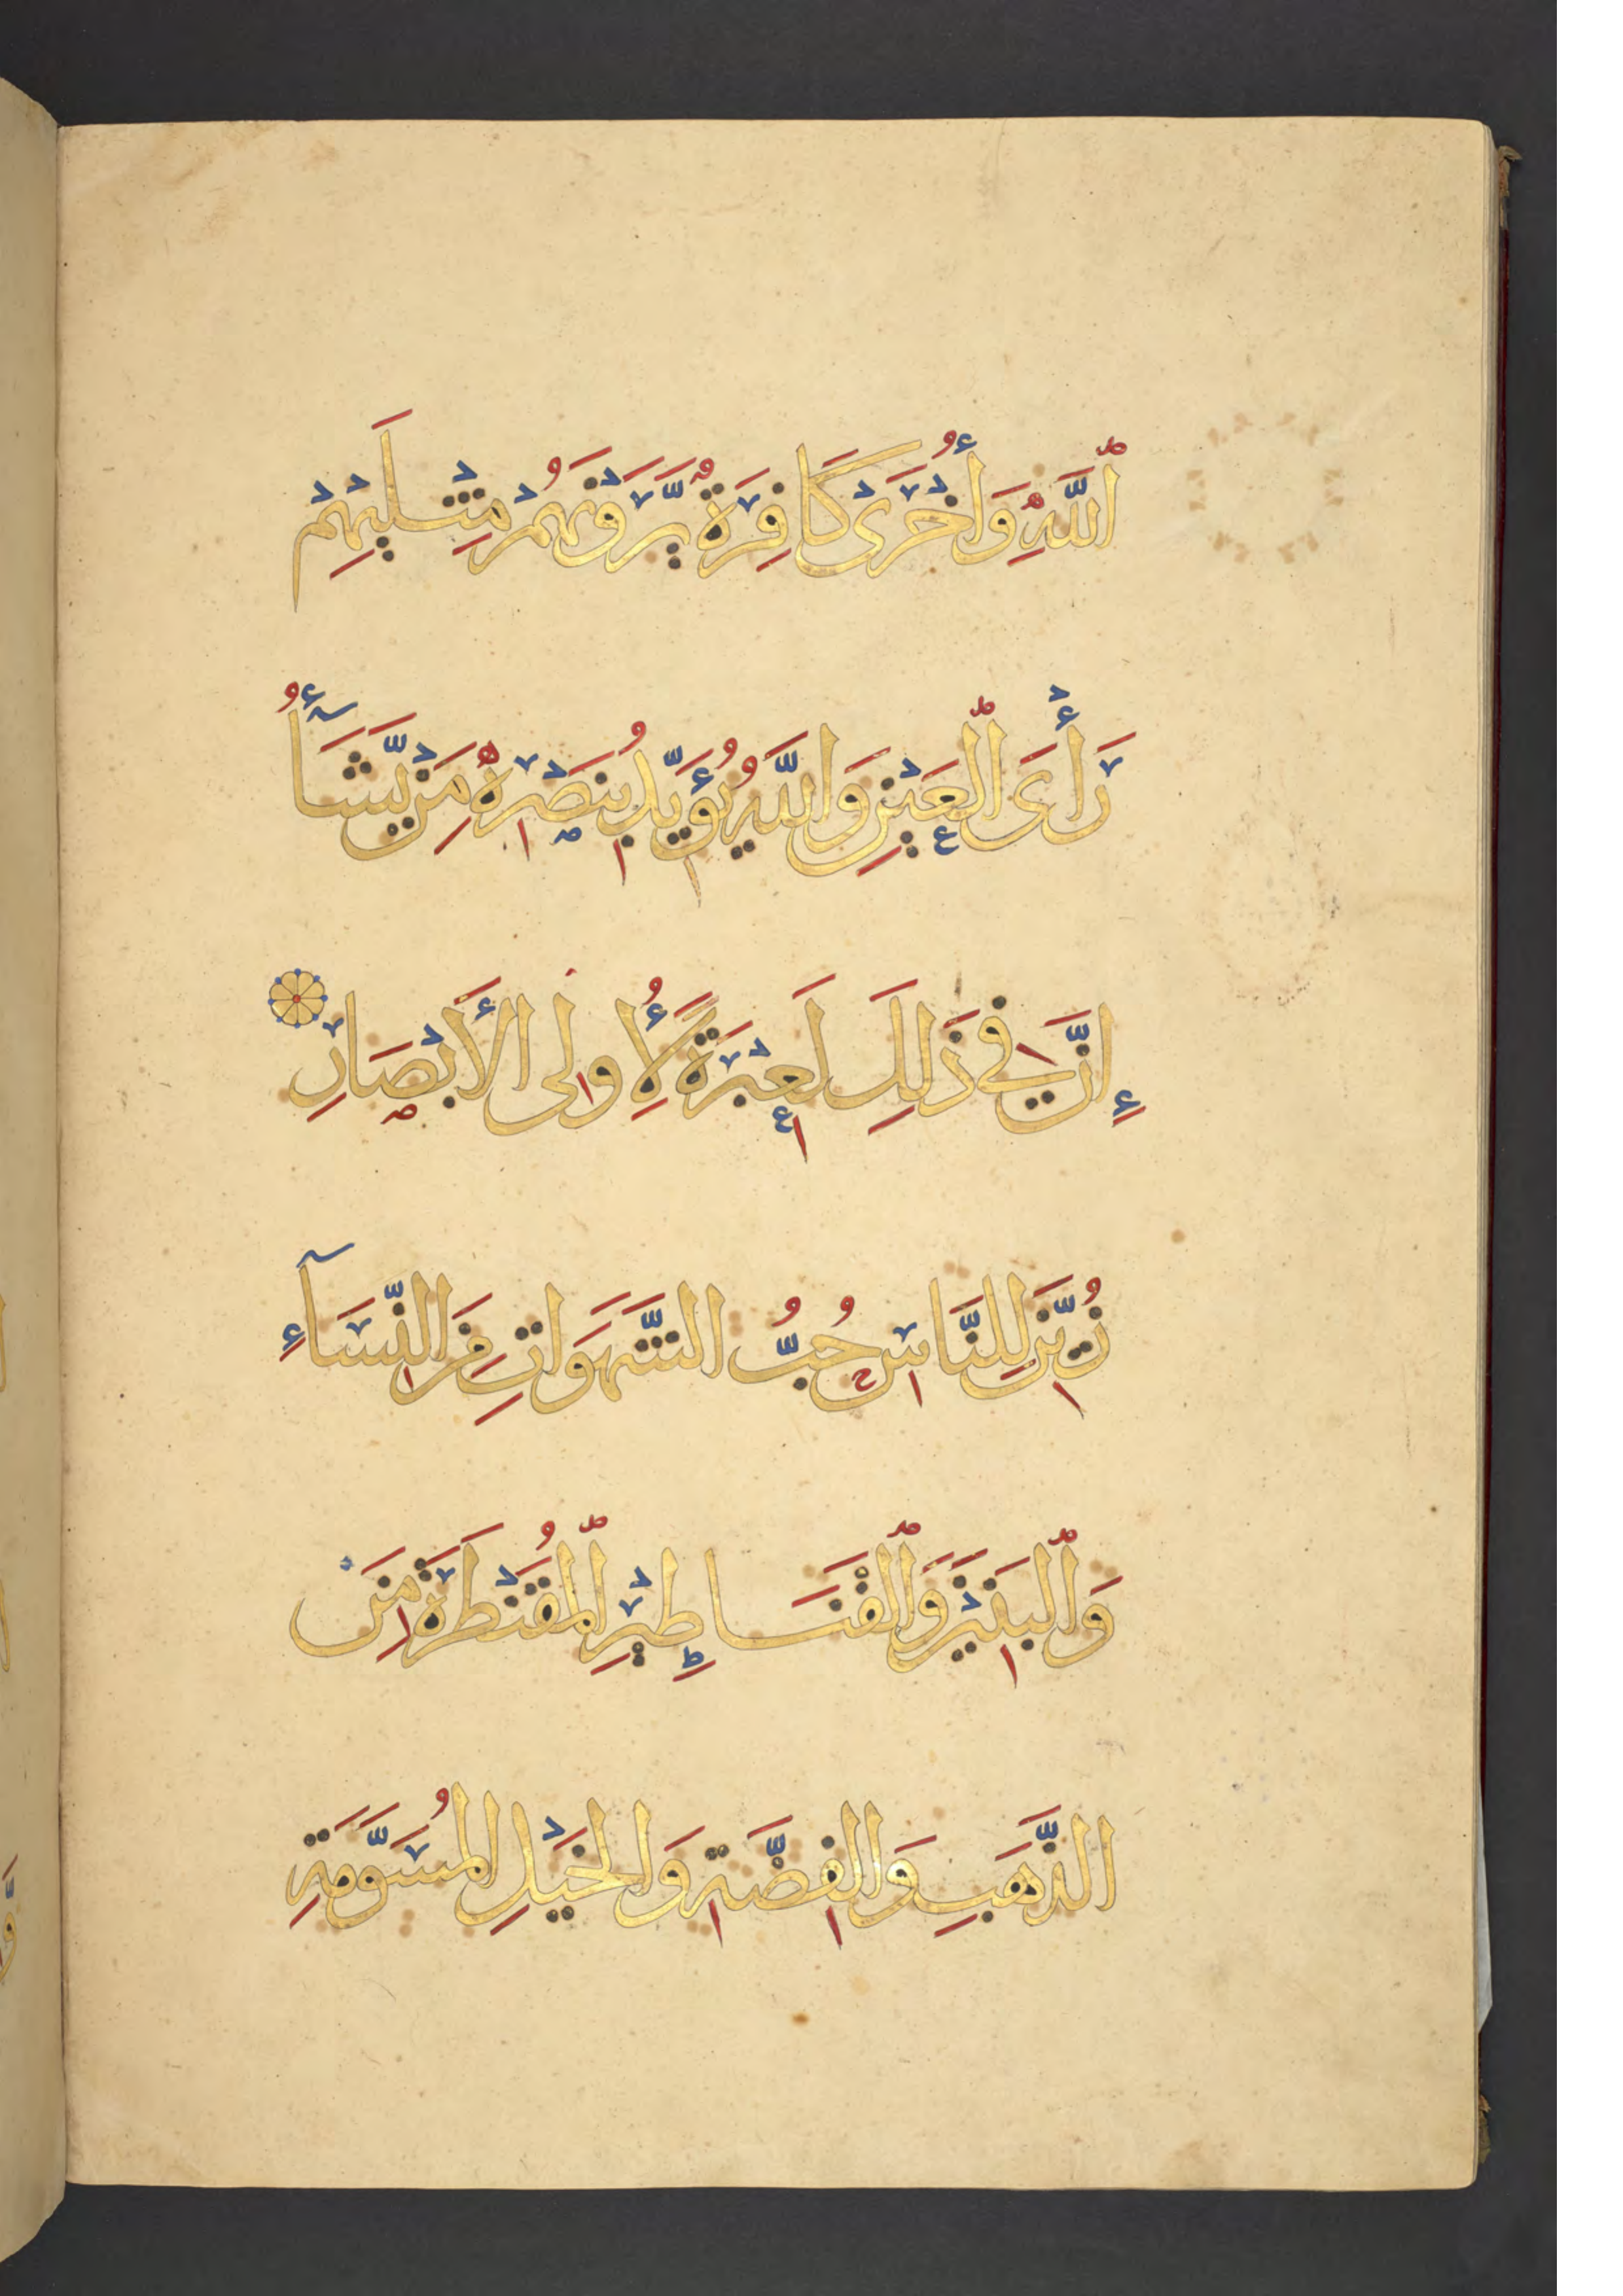 ٱللَّهِ وَأُخْرَىٰ كَافِرَةٌ يَّرَوْنَهُمْ مِّثْلَيْهِمْ
رَأْىَ ٱلْعَيْنِ وَاللَّهُ يُؤَيِّدُ بِنَصْرِهِ مَنْ يَّشَآءُ
إِنَّ فِي ذَلِكَ لَعِبْرَةً لِأُولِى الأَبْصَارِ
زُيِّنَ لِلنَّاسِ حُبُّ الشَّهَوَاتِ مِنَ النِّسَآءِ
وَٱلْبَنِيْنَ وَٱلْقَنَاطِيْرِ ٱلْمُقَنْطَرَةِ مِنَ
الذَّهَبِ وَالفِضَّةِ وَالخَيْلِ المُسَوَّمَةِ